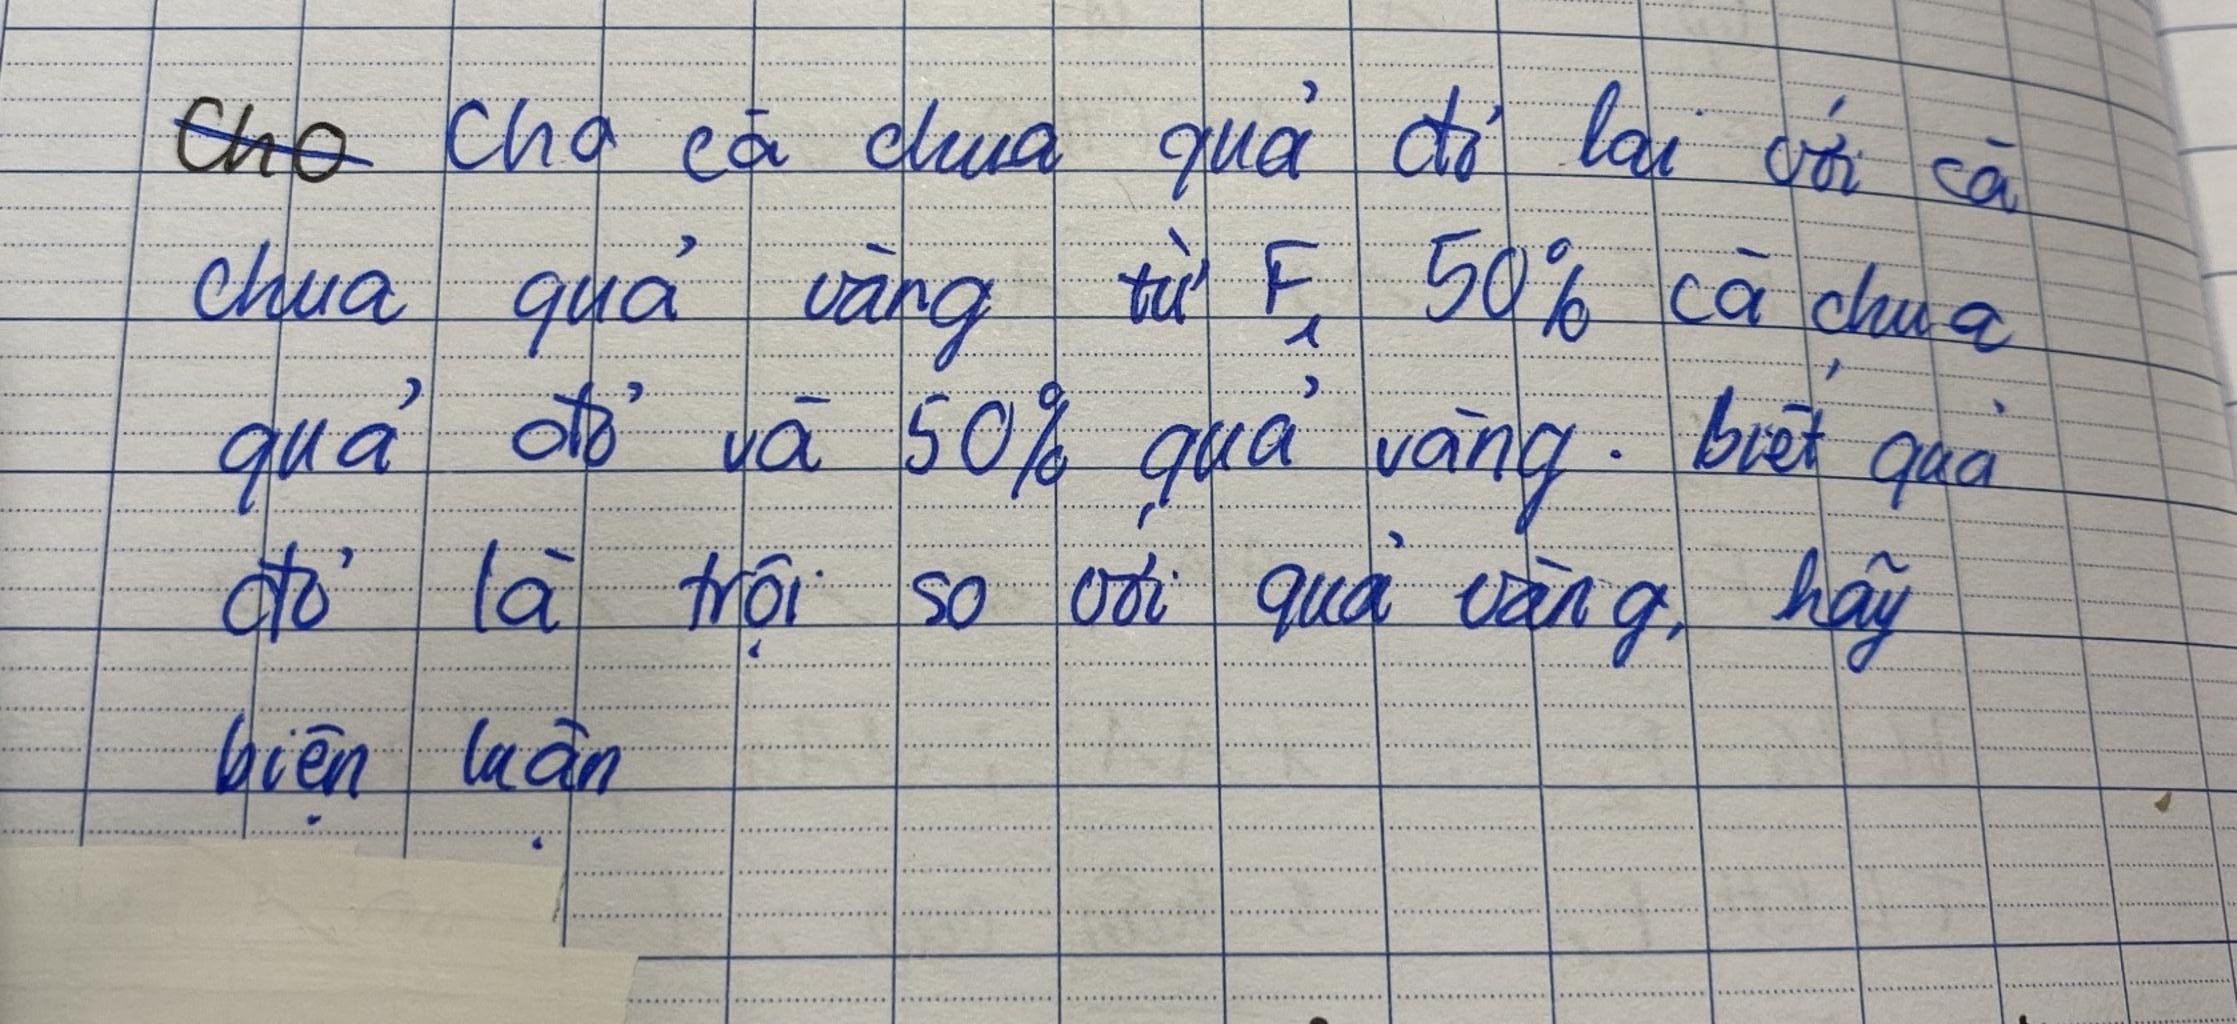 Cho Cho cà chua quả đỏ lai với cà
chua quả vàng từ F1 50% cà chua
quả đỏ và 50% quả vàng. biết quả
đỏ là trội so với quả vàng, hãy
biện luận